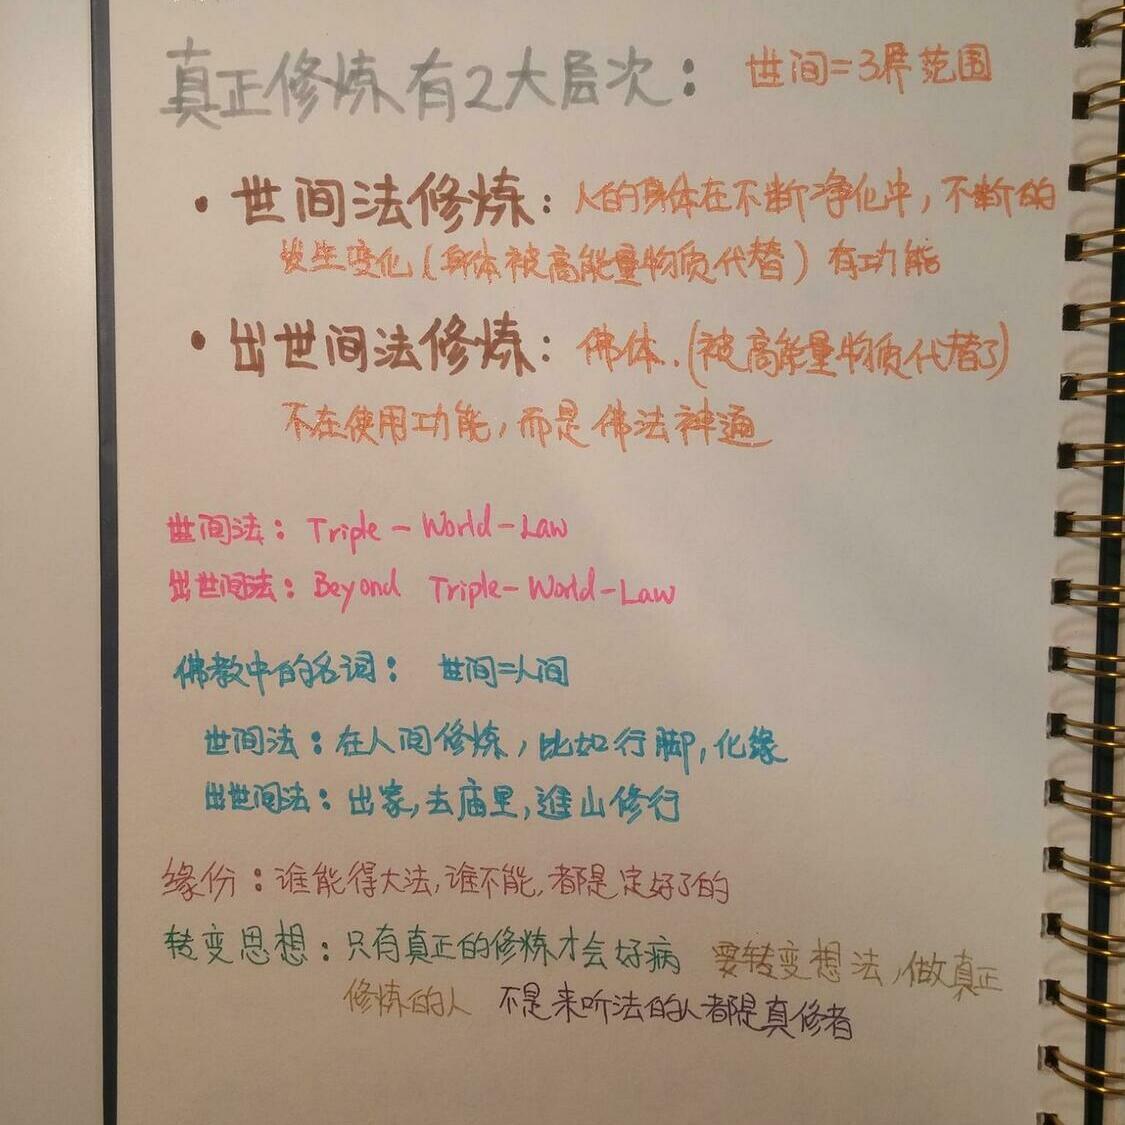 真正修炼有2大层次： 世间=3界范围
• 世间法修炼：人的身体在不断净化中，不断的
发生变化（身体被高能量物质代替）有功能
• 出世间法修炼：佛体.（被高能量物质代替了）
不在使用功能，而是佛法神通
世间法：Triple-World-Law
出世间法：Beyond Triple-World-Law
佛教中的名词： 世间=人间
世间法：在人间修炼，比如行脚，化缘
出世间法：出家，去庙里，進山修行
缘份：谁能得大法，谁不能，都是定好了的
转变思想：只有真正的修炼才会好病 要转变想法，做真正
修炼的人 不是来听法的人都是真修者